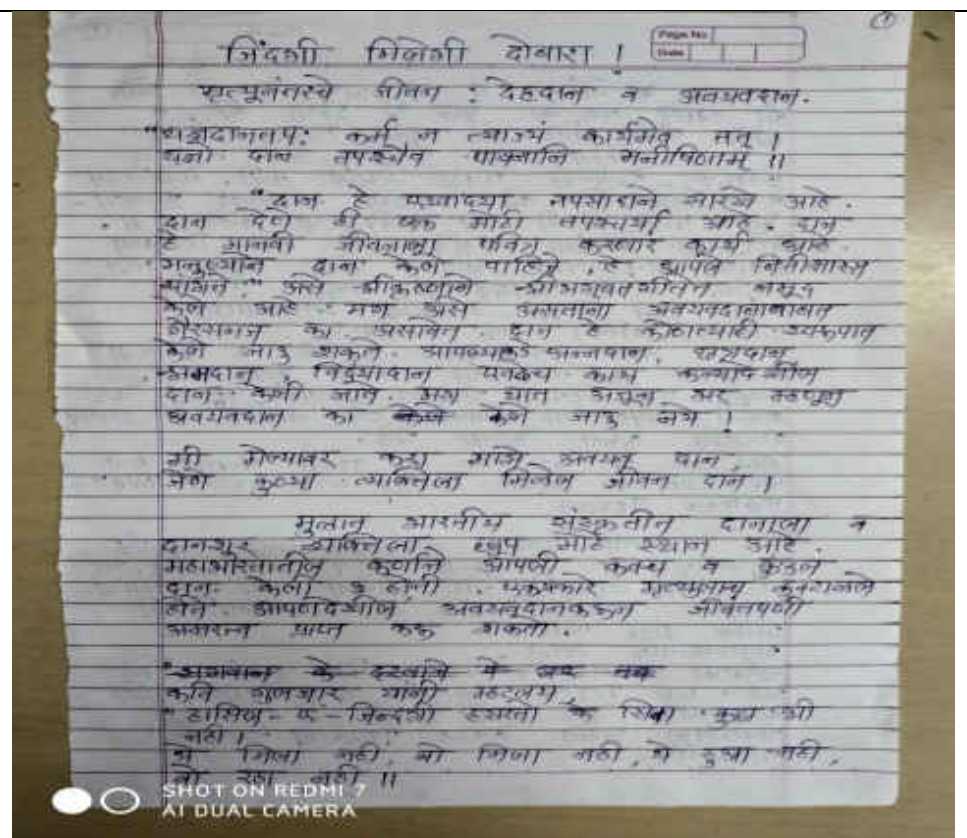 ①
Page No.
Date
जिंदगी मिलेगी दोबारा !
मृत्यूनंतरचे जीवन : देहदान व अवयवदान.
"यज्ञदानतप: कर्म न त्याज्यं कार्यमेव तत् ।
यज्ञो दानं तपश्चैव पावनानि मनीषिणाम् ॥
"दान हे एखाद्या तपसारखे आहे.
दान देणे ही एक मोठी तपश्चर्या आहे. दान
हे मानवी जीवनाला पवित्र करणार कार्य आहे.
मनुष्याने दान केले पाहिजे, हे आपले नितीशास्त्र
सांगते" असे श्रीकृष्णाने श्रीभगवतगीतेत नमूद
केले आहे. मग असे असताना अवयवदानाबाबत
का असावेत. दान हे कोणत्याही स्वरूपात
केले जाऊ शकते. आपण्याकडे अन्नदान,
श्रमदान, विद्यादान एवढेच काय कन्यादेखील
दान केली जाते. मग यात अजून भर म्हणून
अवयवदान का केले जाऊ नये !
मी गेल्यावर करा माझे अवयव दान,
जेणे कुठ्या व्यक्तिला मिळेल जीवन दान !
मुळात भारतीय संस्कृतीत दानाला व
दानशूर व्यक्तिला खूप मोठे स्थान आहे.
महाभारतातील कर्णाने आपली कवच व कुंडले
दान केली होती. एकप्रकारे
होते. आपणदेखील अवयवदानकरून जीवनपणी
अमरत्व प्राप्त करू शकतो.
भगवान के
कवि गुलजार यांनी म्हटलय,
"हासिल-ए-जिन्दगी हसरतो के सिवा कुछ भी
नही ।
ये मिला नही, वो मिला नही, ये हुआ नही,
वो रहा नही ॥
SHOT ON REDMI 7
AI DUAL CAMERA